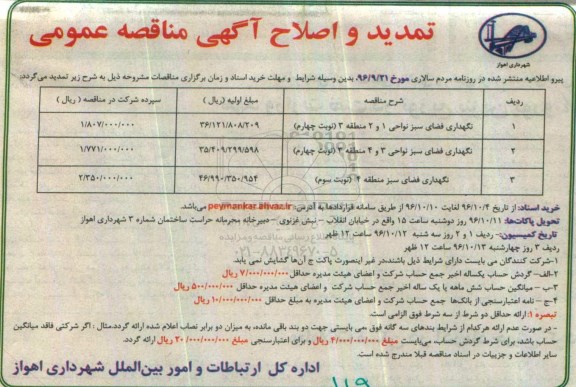 تمدید و اصلاح آگهی مناقصه عمومی
شهرداری اهواز
پیرو اطلاعیه منتشر شده در روزنامه مردم سالاری مورخ ۹۶/۹/۲۱، بدین وسیله شرایط و مهلت خرید اسناد و زمان برگزاری مناقصات مشروحه ذیل به شرح زیر تمدید می‌گردد.
ردیف شرح مناقصه مبلغ اولیه (ریال) سپرده شرکت در مناقصه (ریال)
۱ نگهداری فضای سبز نواحی ۱ و ۲ منطقه ۳ (نوبت چهارم) ۳۶/۱۲۱/۸۰۸/۲۰۹ ۱/۸۰۷/۰۰۰/۰۰۰
۲ نگهداری فضای سبز نواحی ۳ و ۴ منطقه ۳ (نوبت چهارم) ۳۵/۴۰۹/۲۹۹/۵۹۸ ۱/۷۷۱/۰۰۰/۰۰۰
۳ نگهداری فضای سبز منطقه ۴ (نوبت سوم) ۴۶/۹۹۰/۳۵۰/۹۵۴ ۲/۳۵۰/۰۰۰/۰۰۰
خرید اسناد: از تاریخ ۹۶/۱۰/۴ لغایت ۹۶/۱۰/۱۰ از طریق سامانه قراردادها به آدرس: peymankar.ahvaz.ir می‌باشد.
تحویل پاکات‌ها: ۹۶/۱۰/۱۱ روز دوشنبه ساعت ۱۵ واقع در خیابان انقلاب – نبش غزنوی – دبیرخانه محرمانه حراست ساختمان شماره ۳ شهرداری اهواز
تاریخ کمیسیون– ردیف ۱ و ۲ روز سه شنبه ۹۶/۱۰/۱۲ ساعت ۱۲ ظهر
ردیف ۳ روز چهارشنبه ۹۶/۱۰/۱۳ ساعت ۱۲ ظهر
۱–شرکت کنندگان می بایست دارای شرایط ذیل باشند،در غیر اینصورت پاکت ج آن‌ها گشایش نمی یابد.
۲–الف–گردش حساب یکساله اخیر جمع حساب شرکت و اعضای هیئت مدیره حداقل ۷/۰۰۰/۰۰۰/۰۰۰ ریال
۳–ب – میانگین حساب شش ماهه یا یک ساله اخیر جمع حساب شرکت و اعضای هیئت مدیره حداقل ۵۰۰/۰۰۰/۰۰۰ ریال
۴–ج – نامه اعتبارسنجی از بانک‌ها جمع حساب شرکت و اعضای هیئت مدیره به مبلغ حداقل ۱۰/۰۰۰/۰۰۰/۰۰۰ ریال
تبصره ۱: ارائه حداقل دو شرط از سه شرط فوق الزامی است.
- در صورت عدم ارائه هرکدام از شرایط بندهای سه گانه فوق می بایستی جهت دو بند باقی مانده، به میزان دو برابر نصاب اعلام شده ارائه گردد.مثال : اگر شرکتی فاقد میانگین
حساب باشد، برای شرط گردش حساب، می‌بایست مبلغ
سایر اطلاعات و جزییات در اسناد مناقصه قبلا مندرج شده است.
اداره کل ارتباطات و امور بین‌الملل شهرداری اهواز